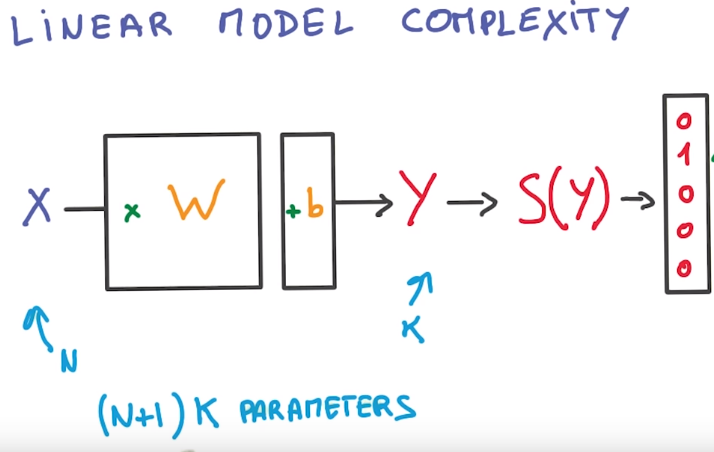 LINEAR MODEL COMPLEXITY
X × W + b → Y → S(Y) →
0
1
0
0
0
N
K
(N+1) K PARAMETERS